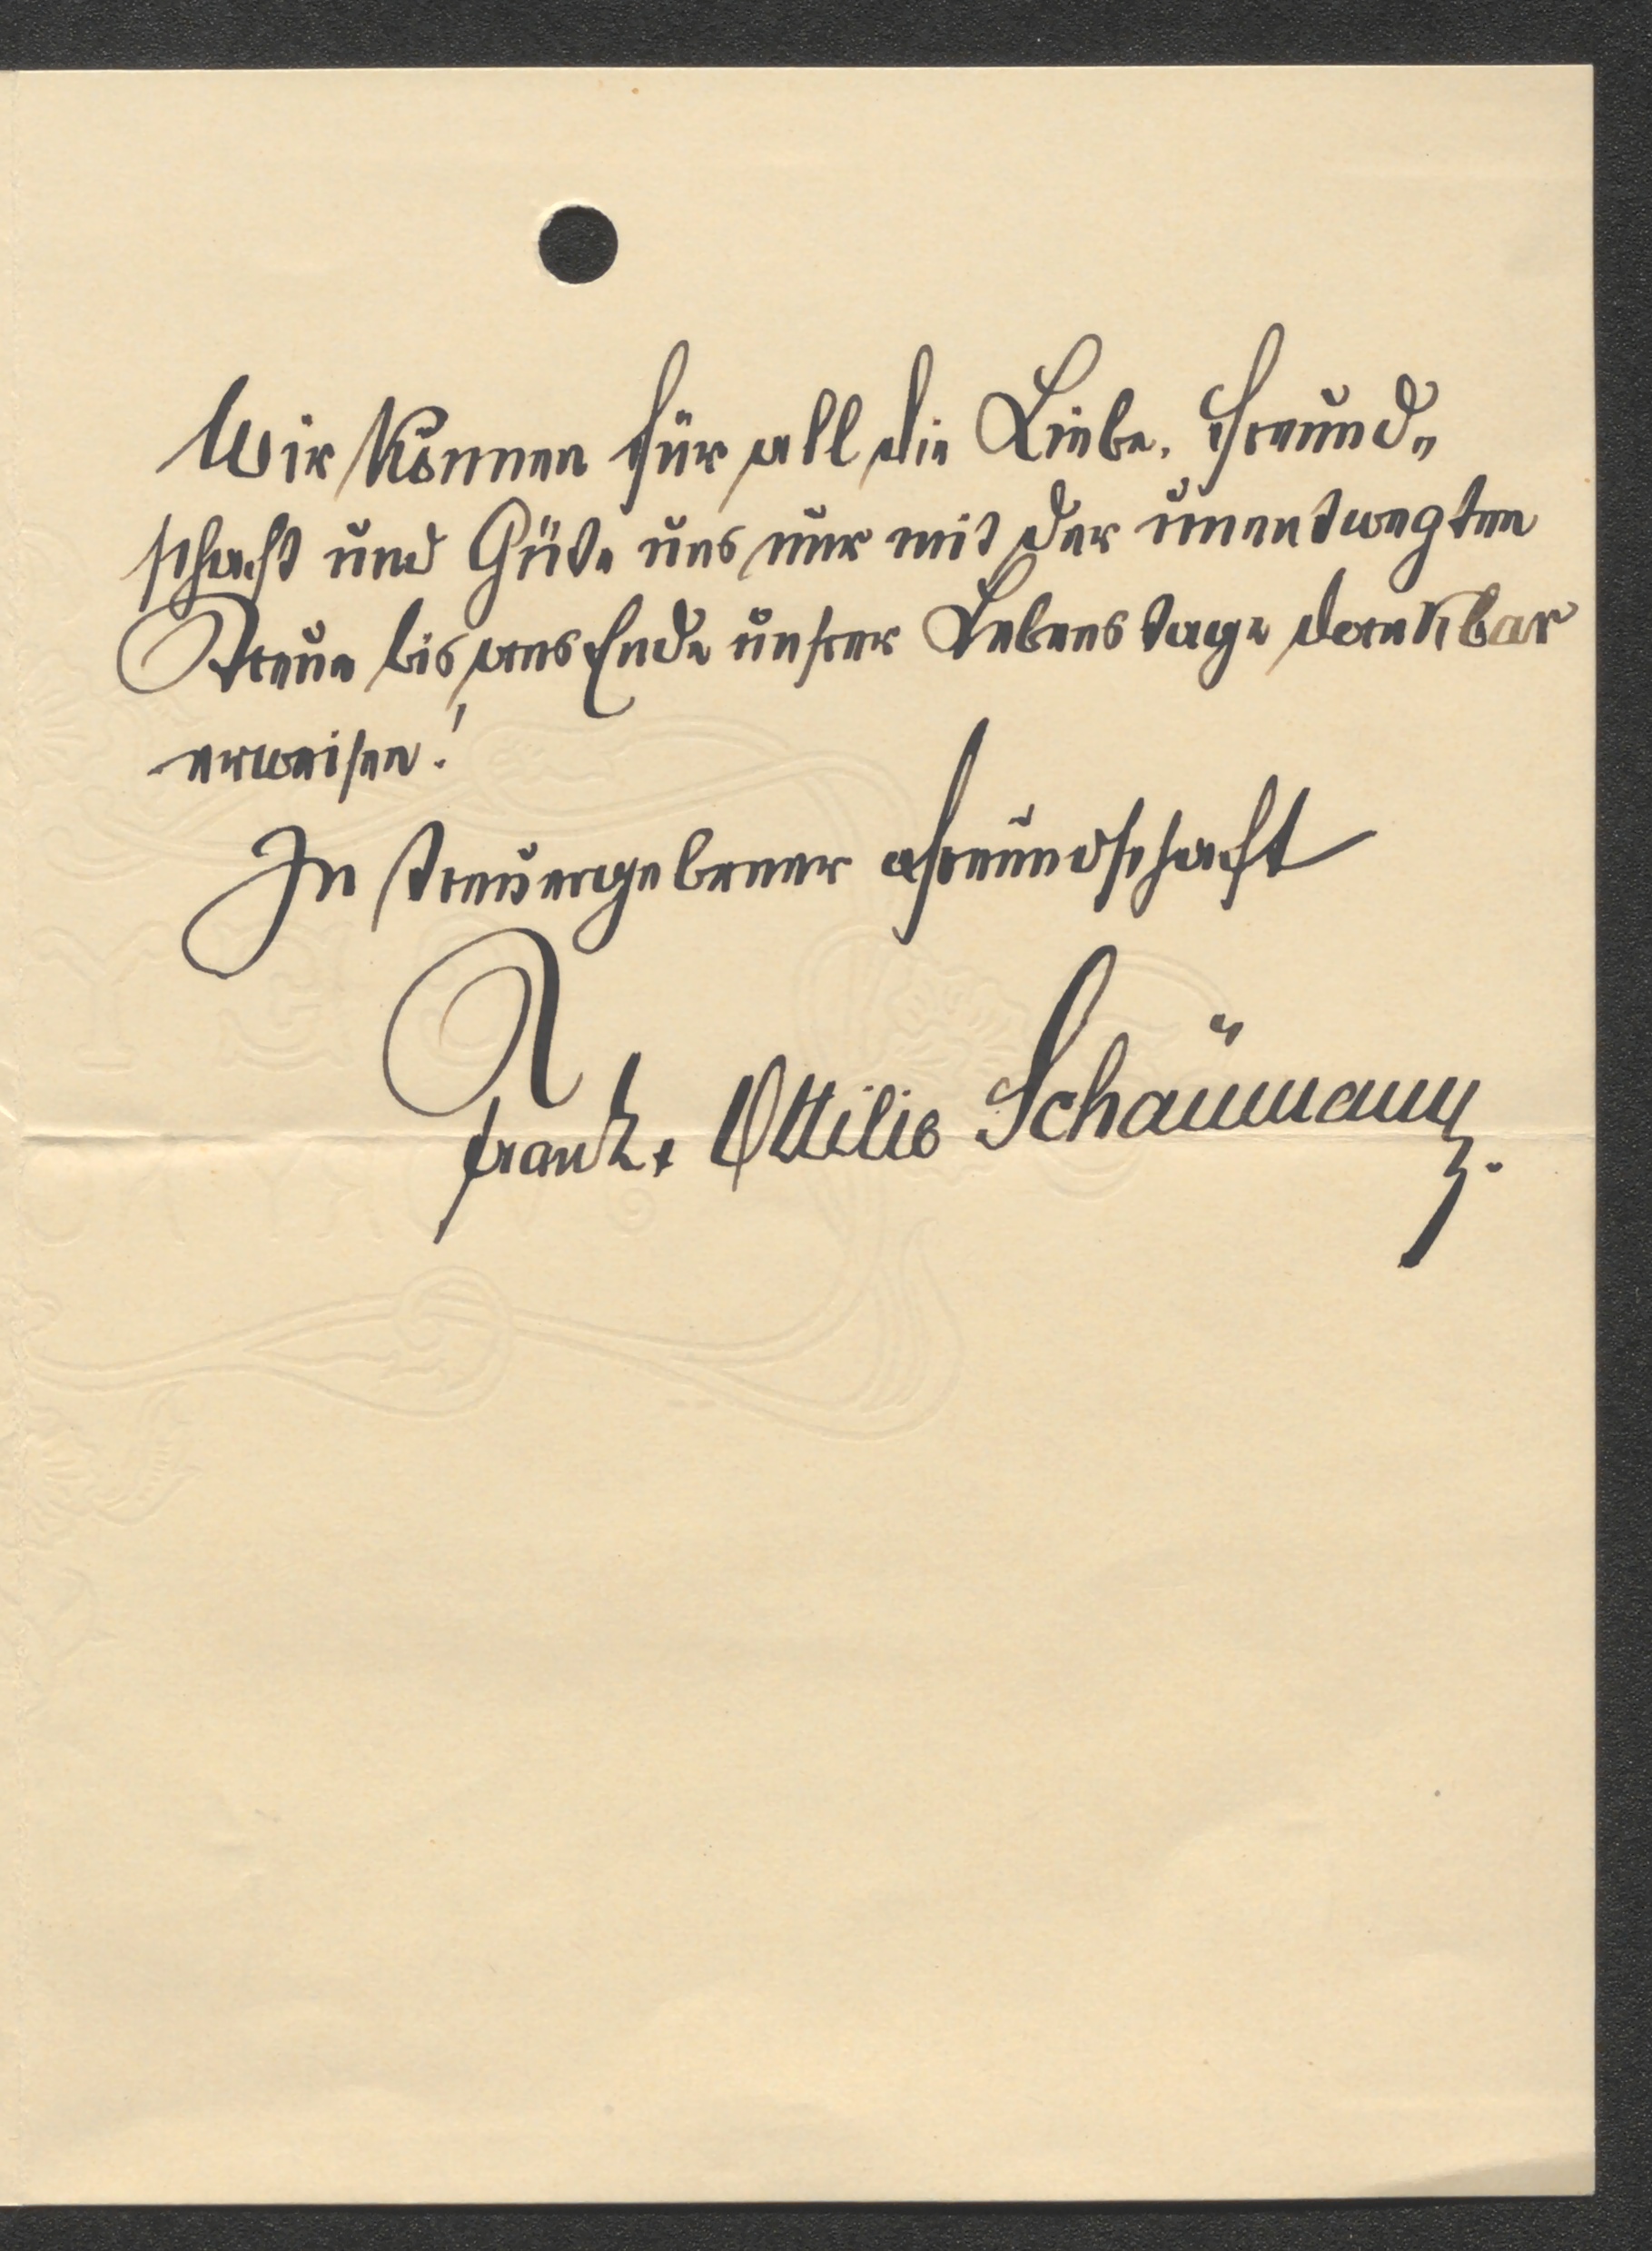 Wir können für all die Liebe, Freund„
schaft und Güte uns nur mit der unentwegten
Treue bis ans Ende unsrer Lebenstage dankbar
erweisen!
In treuergebener Freundschaft
Frank + Ottilie Schaümann.